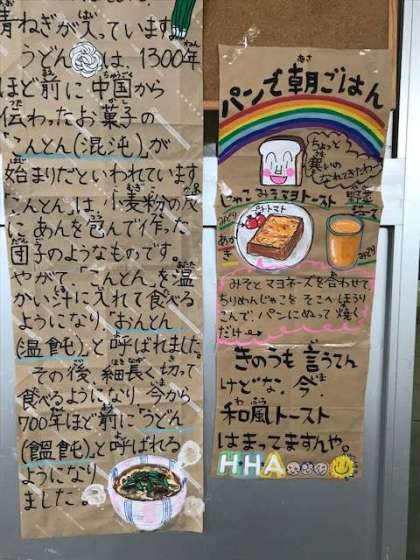 青ねぎが入っています。
うどんは、1300年
ほど前に中国から
伝わったお菓子の
「こんとん(混沌)」が
始まりだといわれています
「こんとん」は、小麦粉の皮
にあんを包んで作った
団子のようなものです。
やがて、「こんとん」を温
かい汁に入れて食べる
ようになり、「おんとん
(温飩)」と呼ばれました。
その後、細長く切って
食べるようになり、今から
700年ほど前に「うどん
(饂飩)」と呼ばれる
ようになり
ました。
パンで朝ごはん
ちょっと
寒いの
なれてきたわ〜
じゃこみそマヨトースト
野菜
みどり
トマト
あか
き
みどり
みそとマヨネーズを合わせて、
ちりめんじゃこを そこへほうり
こんで、パンにぬって焼く
だけ
きのうも言うてん
けどな、今
和風トースト
はまってますんや。
HHA